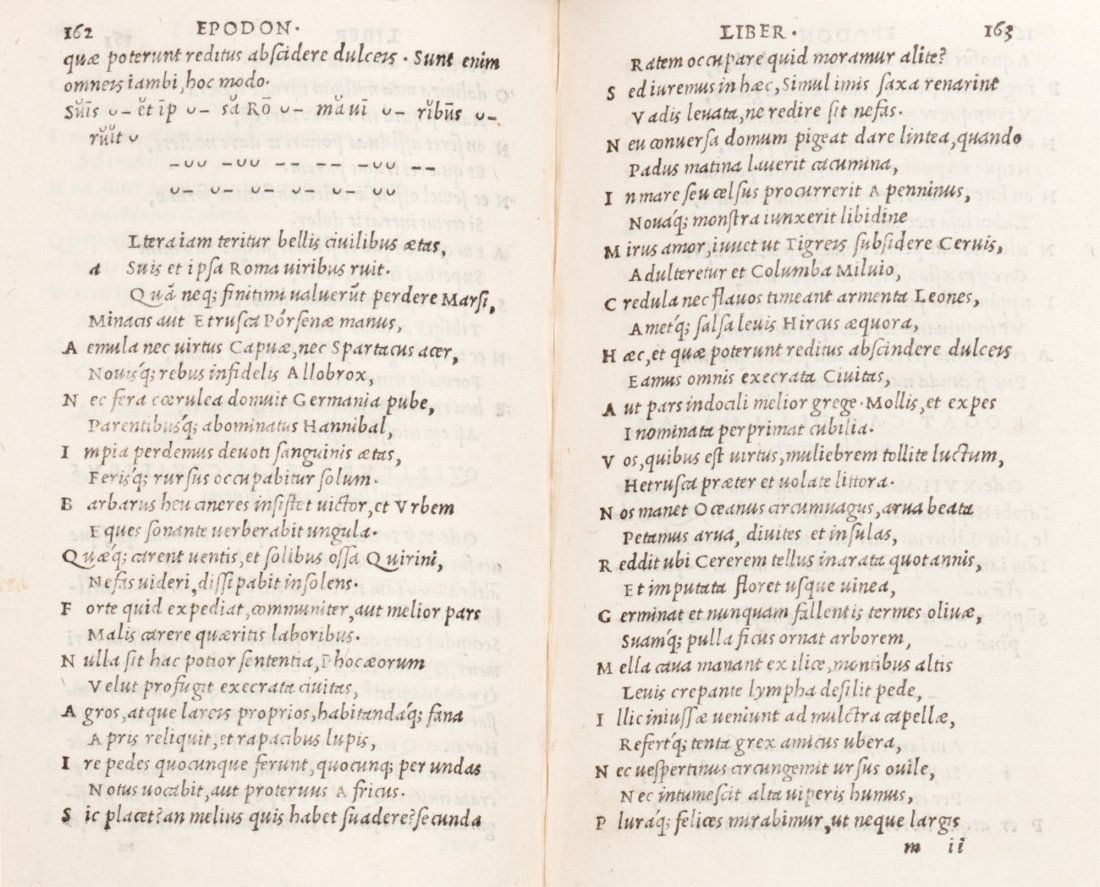 162 EPODON.
quæ poterunt reditus abscidere dulceis. Sunt enim
omneis iambi, hoc modo.
Sŭīs ᴗ– ĕt īp ᴗ– sā Rō ᴗ– mă vī ᴗ– rĭbūs ᴗ–
rŭĭt ᴗ
–ᴗᴗ –ᴗᴗ –– –– –ᴗᴗ ––
ᴗ– ᴗ– ᴗ– ᴗ– ᴗ– ᴗᴗ
Ltera iam teritur bellis ciuilibus ætas,
a Suis et ipsa Roma uiribus ruit.
Quā neq; finitimi ualuerūt perdere Marsi,
Minacis aut Etrusca Porsenæ manus,
Aemula nec uirtus Capuæ, nec Spartacus acer,
Nouisq́; rebus infidelis Allobrox,
Nec fera cœrulea domuit Germania pube,
Parentibusq́; abominatus Hannibal,
Impia perdemus deuoti sanguinis ætas,
Ferisq́; rursus occupabitur solum.
Barbarus heu cineres insistet uictor, et Vrbem
Eques sonante uerberabit ungula.
Quæq́; carent uentis, et solibus ossa Quirini,
Nefas uideri, dissipabit insolens.
Forte quid expediat, communiter, aut melior pars
Malis carere quæritis laboribus.
Nulla sit hac potior sententia, Phocæorum
Velut profugit execrata ciuitas,
Agros, atque lareis proprios, habitandaq́; fana
Apris reliquit, et rapacibus lupis,
Ire pedes quocunque ferunt, quocunq; per undas
Notus uocabit, aut proteruus Africus.
Sic placet? an melius quis habet suadere? secunda
LIBER. 163
Ratem occupare quid moramur alite?
Sed iuremus in hæc, Simul imis saxa renarint
Vadis leuata, ne redire sit nefas.
Neu conuersa domum pigeat dare lintea, quando
Padus matina lauerit cacumina,
In mare seu celsus procurrerit Apenninus,
Nouaq́; monstra iunxerit libidine
Mirus amor, iuuet ut Tigreis subsidere Ceruis,
Adulteretur et Columba Miluio,
Credula nec flauos timeant armenta Leones,
Ametq́; salsa leuis Hircus æquora,
Hæc, et quæ poterunt reditus abscindere dulceis
Eamus omnis execrata Ciuitas,
Aut pars indocili melior grege. Mollis, et expes
Inominata perprimat cubilia.
Vos, quibus est uirtus, muliebrem tollite luctum,
Hetrusca præter et uolate littora.
Nos manet Oceanus circumuagus, arua beata
Petamus arua, diuites et insulas,
Reddit ubi Cererem tellus inarata quotannis,
Et imputata floret usque uinea,
Germinat et nunquam fallentis termes oliuæ,
Suamq́; pulla ficus ornat arborem,
Mella caua manant ex ilice, montibus altis
Leuis crepante lympha desilit pede,
Illic iniussæ ueniunt ad mulctra capellæ,
Refertq́; tenta grex amicus ubera,
Nec uespertinus circungemit ursus ouile,
Nec intumescit alta uiperis humus,
Pluraq́; felices mirabimur, ut neque largis
m ii